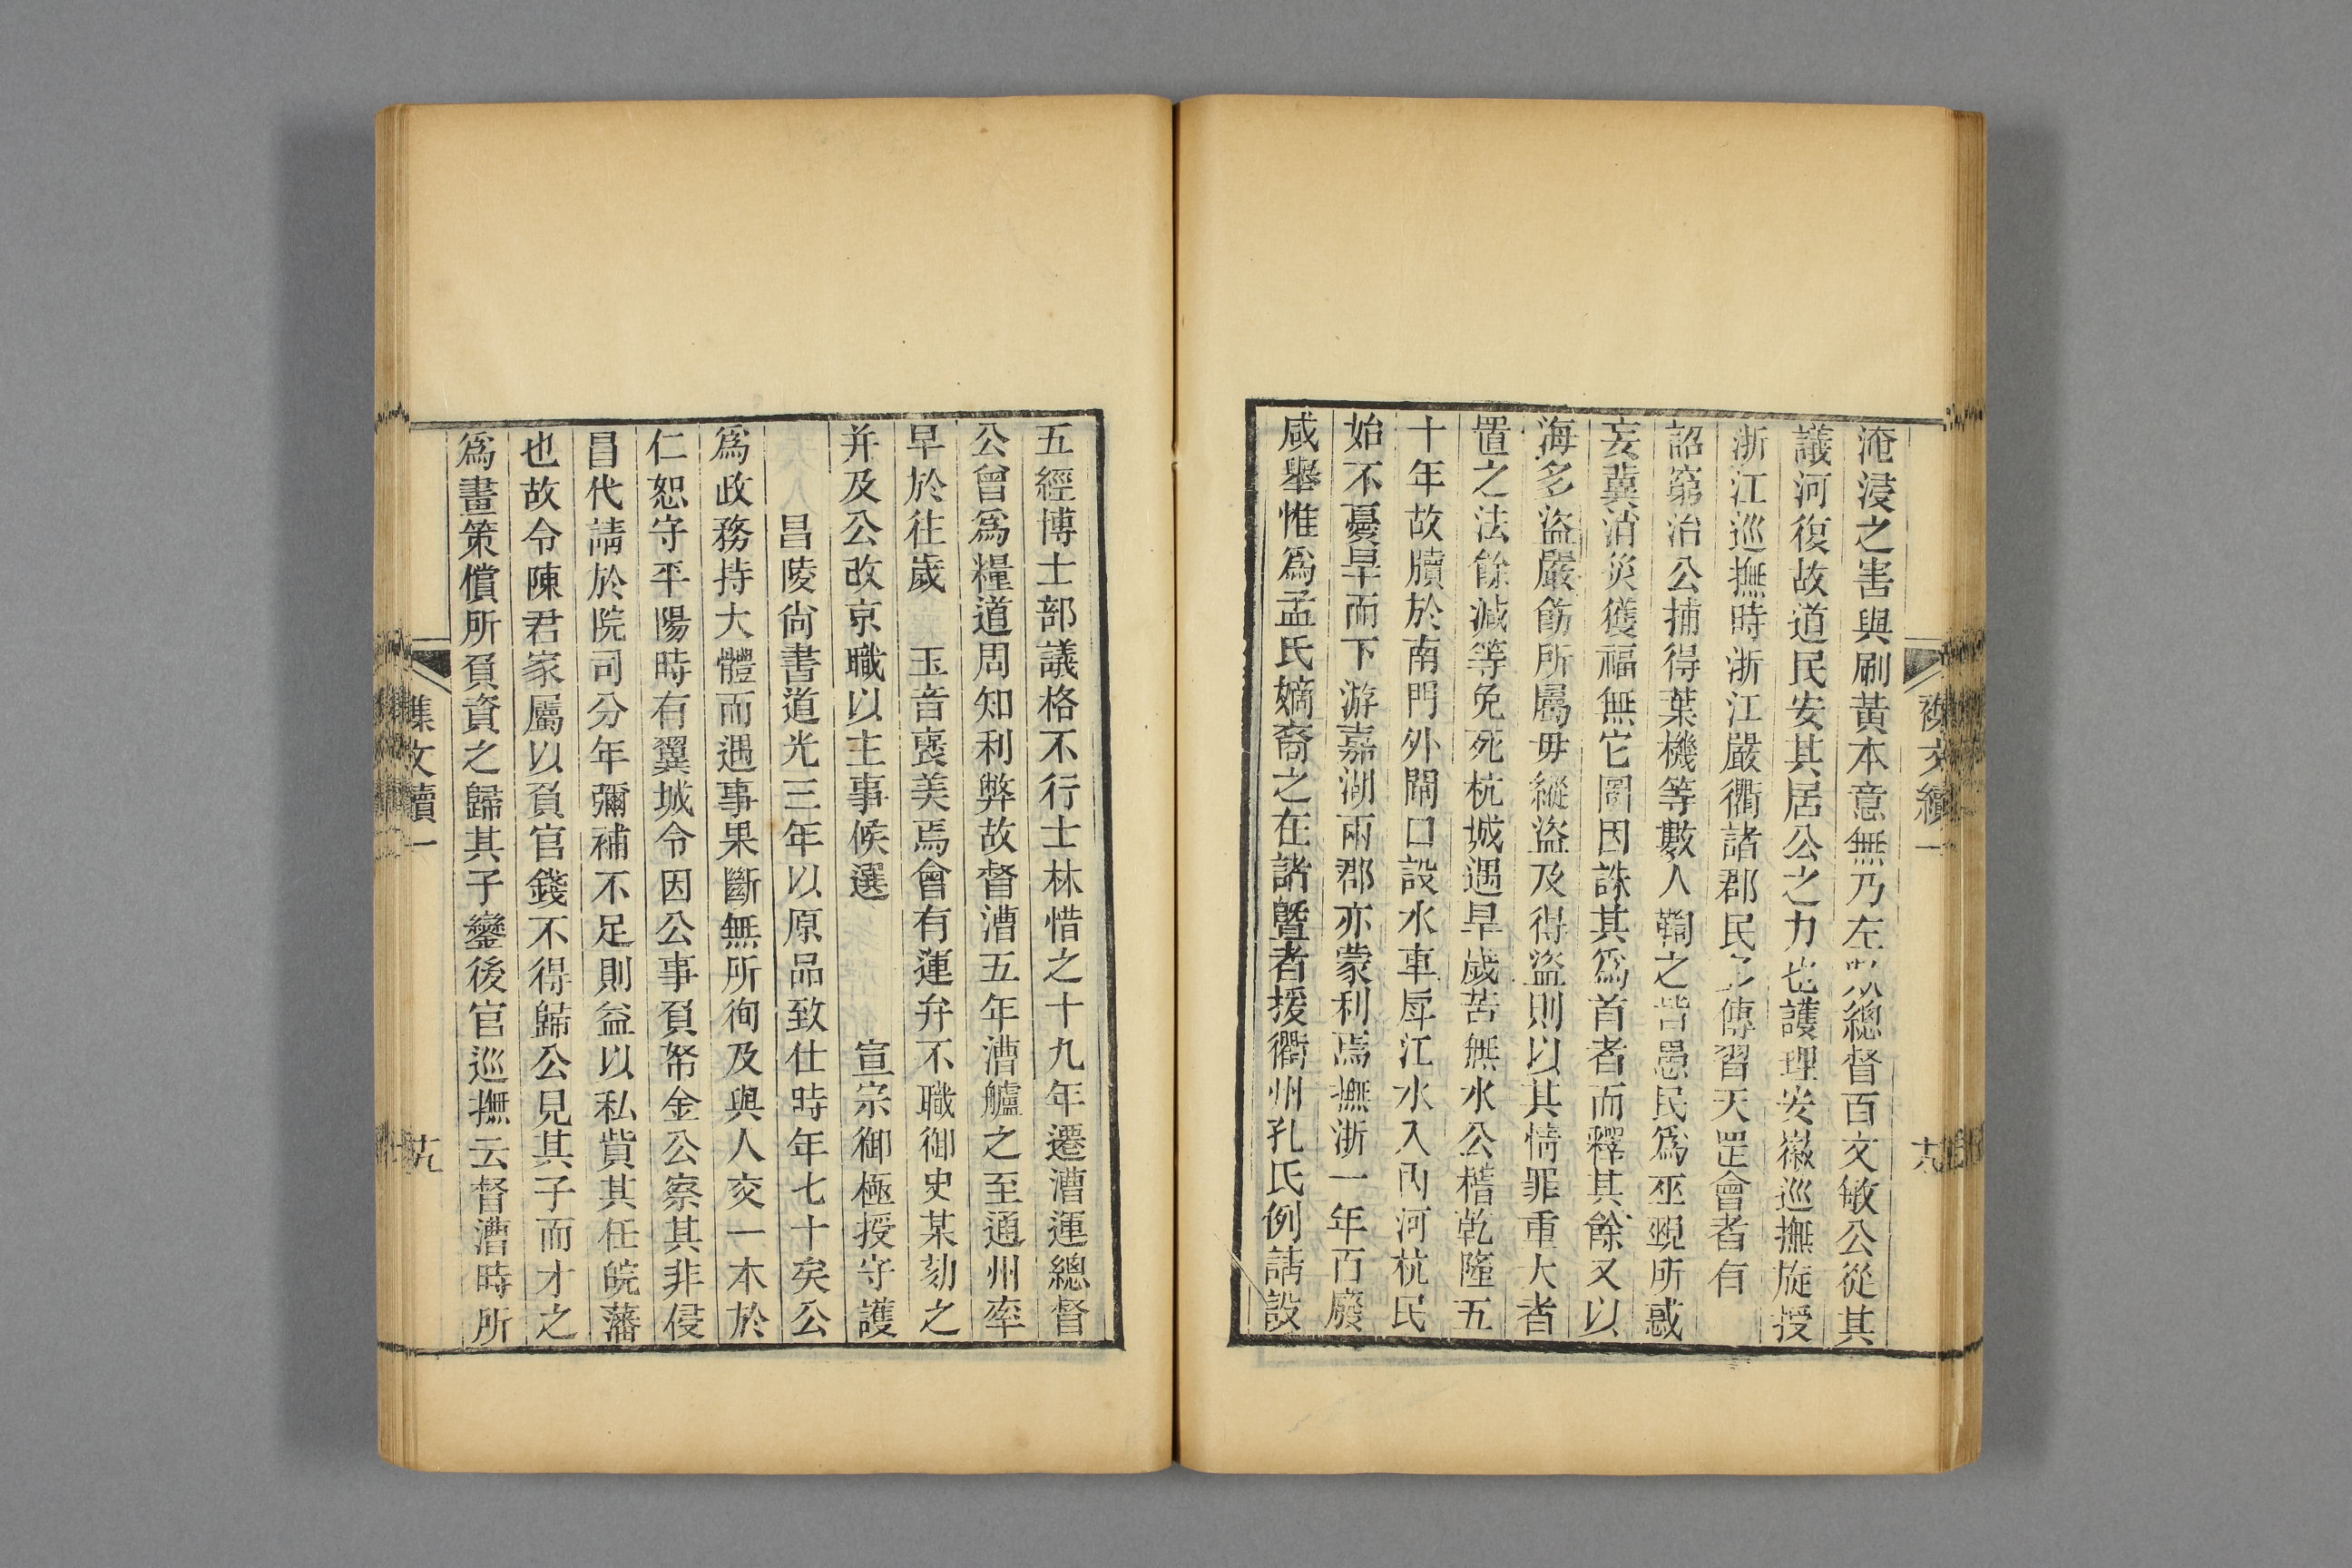 襍文續一
十八
淹浸之害與刷黃本意無乃左總督百文敏公從其
議河復故道民安其居公之力也護理安徽巡撫旋授
浙江巡撫時浙江嚴衢諸郡民多傳習天罡會者有
詔窮治公捕得葉機等數人鞫之皆愚民爲巫覡所惑
妄冀消災獲福無它圖因誅其爲首者而釋其餘又以
海多盜嚴飭所屬毋縱盜及得盜則以其情罪重大者
置之法餘減等免死杭城遇旱歲苦無水公稽乾隆五
十年故牘於南門外閘口設水車戽江水入內河杭民
始不憂旱而下游嘉湖兩郡亦蒙利焉撫浙一年百廢
咸舉惟爲孟氏嫡裔之在諸曁者援衢州孔氏例請設
五經博士部議格不行士林惜之十九年遷漕運總督
公曾爲糧道周知利弊故督漕五年漕艫之至通州率
早於往歲　玉音褒美焉會有運弁不職御史某劾之
并及公改京職以主事候選　　　宣宗御極授守護
昌陵尙書道光三年以原品致仕時年七十矣公
爲政務持大體而遇事果斷無所徇及與人交一本於
仁恕守平陽時有翼城令因公事負帑金公察其非侵
昌代請於院司分年彌補不足則益以私貲其任皖藩
也故令陳君家屬以負官錢不得歸公見其子而才之
爲畫策償所負資之歸其子鑾後官巡撫云督漕時所
襍文續一
十九